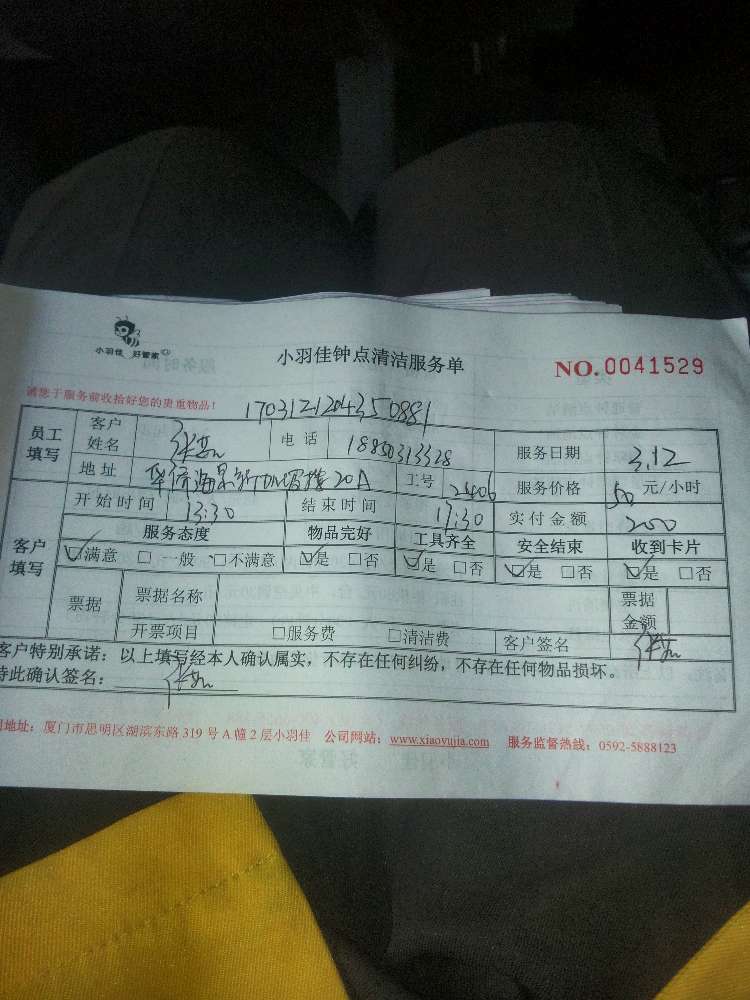 小羽佳 好管家
小羽佳钟点清洁服务单
NO.0041529
请您于服务前收拾好您的贵重物品!
1703121204350881
员工填写 客户姓名 电话 18850313328 服务日期 3.12
地址 20A 工号 服务价格 50 元/小时
开始时间 13:30 结束时间 17:30 实付金额 200
客户填写 服务态度 物品完好 工具齐全 安全结束 收到卡片
☑满意 □一般 □不满意 ☑是 □否 ☑是 □否 ☑是 □否 ☑是 □否
票据 票据名称 票据金额
开票项目 □服务费 □清洁费 客户签名
客户特别承诺:以上填写经本人确认属实,不存在任何纠纷,不存在任何物品损坏。
特此确认签名:
地址:厦门市思明区湖滨东路 319 号 A 幢 2 层小羽佳 公司网站:www.xiaoyujia.com 服务监督热线:0592-5888123